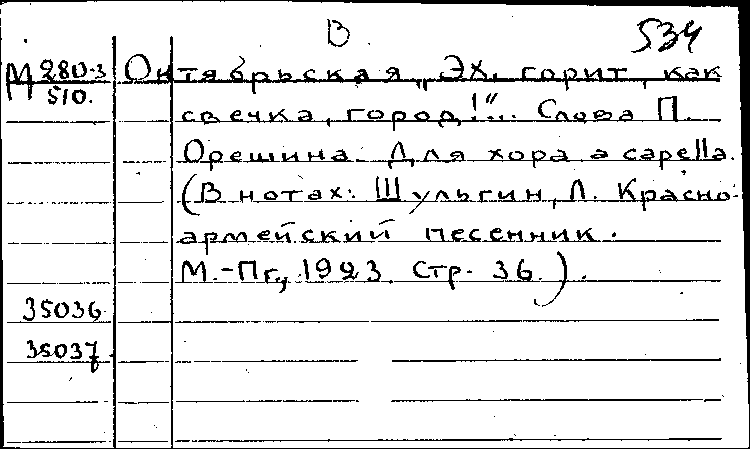 В. 534
М 280-3 Октябрьская „Эх, горит, как
510. свечка, город!”... Слова П.
Орешина. Для хора a capella.
(В нотах: Шульгин, Л. Красно-
армейский песенник.
М.-Пг., 1923. Стр. 36.).
35036
35037